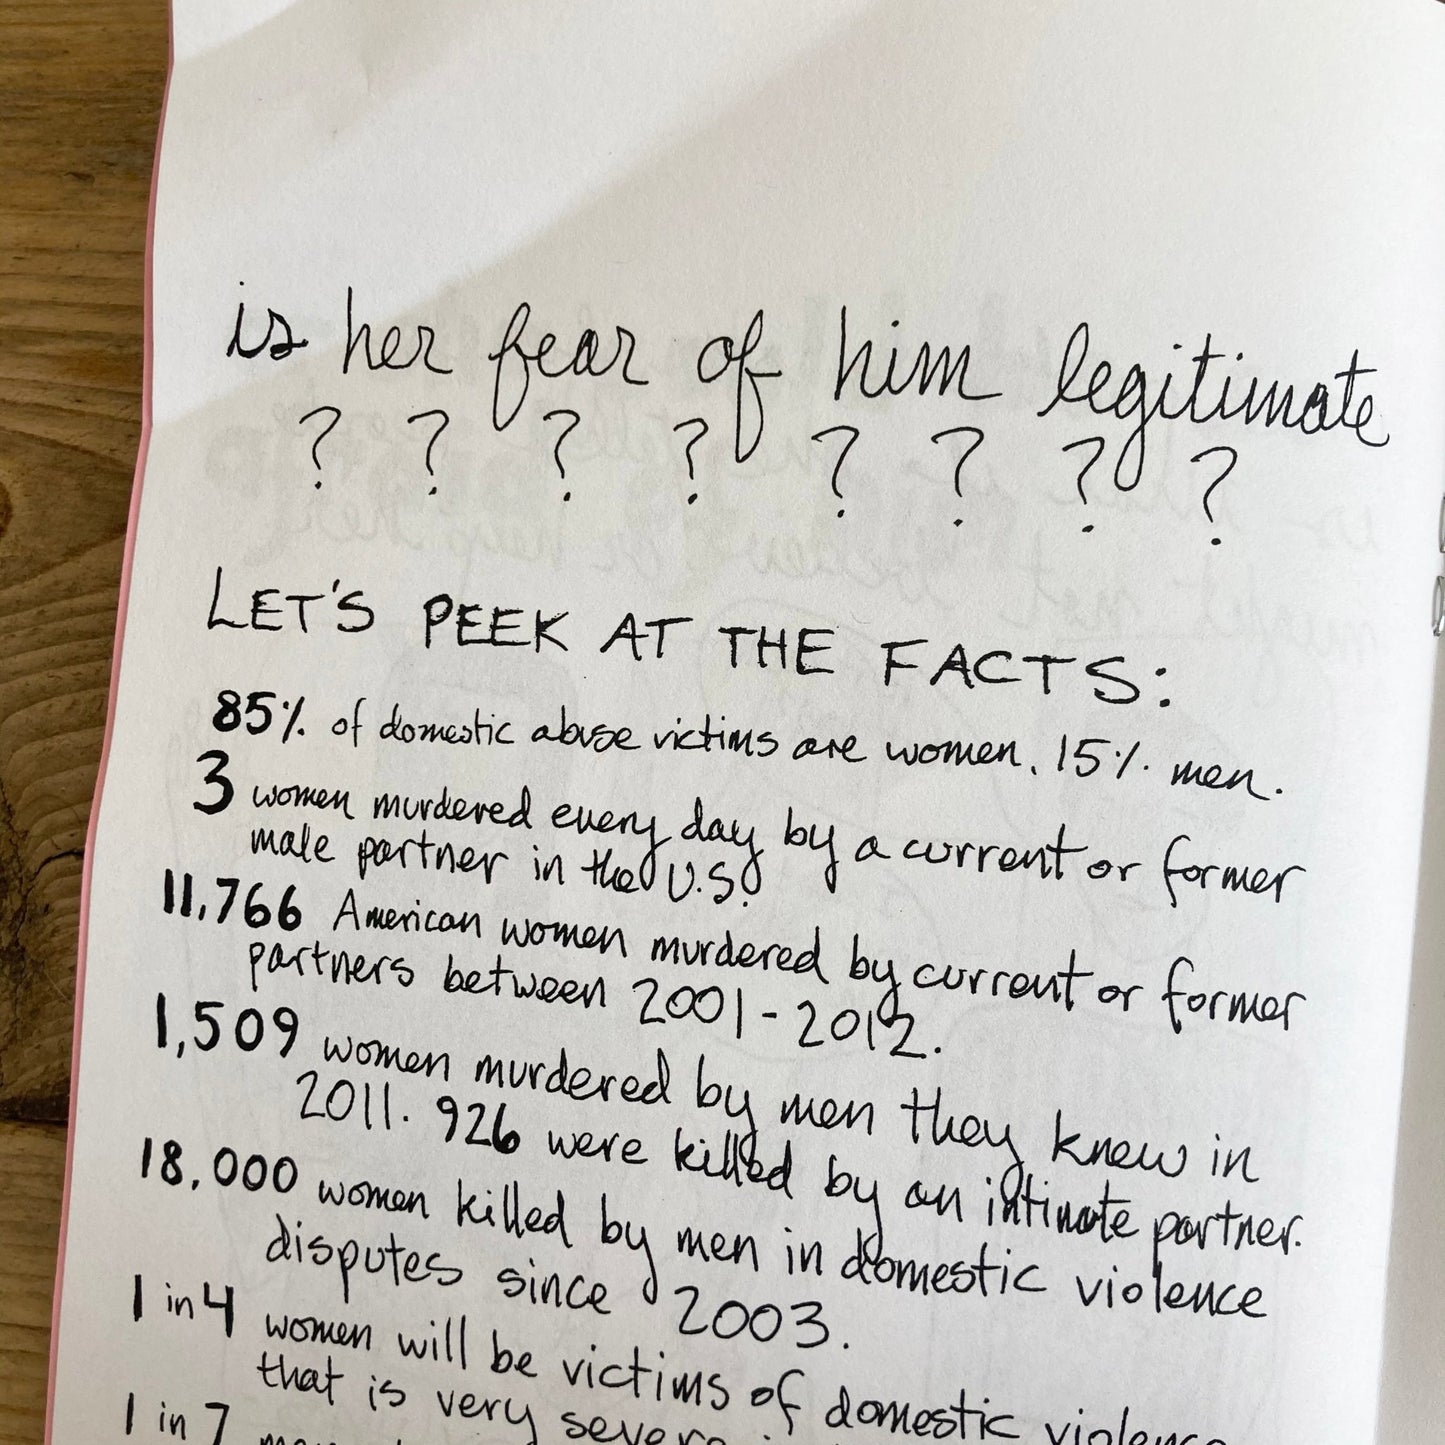 is her fear of him legitimate
? ? ? ? ? ? ? ?
LET'S PEEK AT THE FACTS:
85% of domestic abuse victims are women. 15% men.
3 women murdered every day by a current or former
male partner in the U.S.
11,766 American women murdered by current or former
partners between 2001-2012.
1,509 women murdered by men they knew in
2011. 926 were killed by an intimate partner.
18,000 women killed by men in domestic violence
disputes since 2003.
1 in 4 women will be victims of domestic violence
that is very severe
1 in 7 men